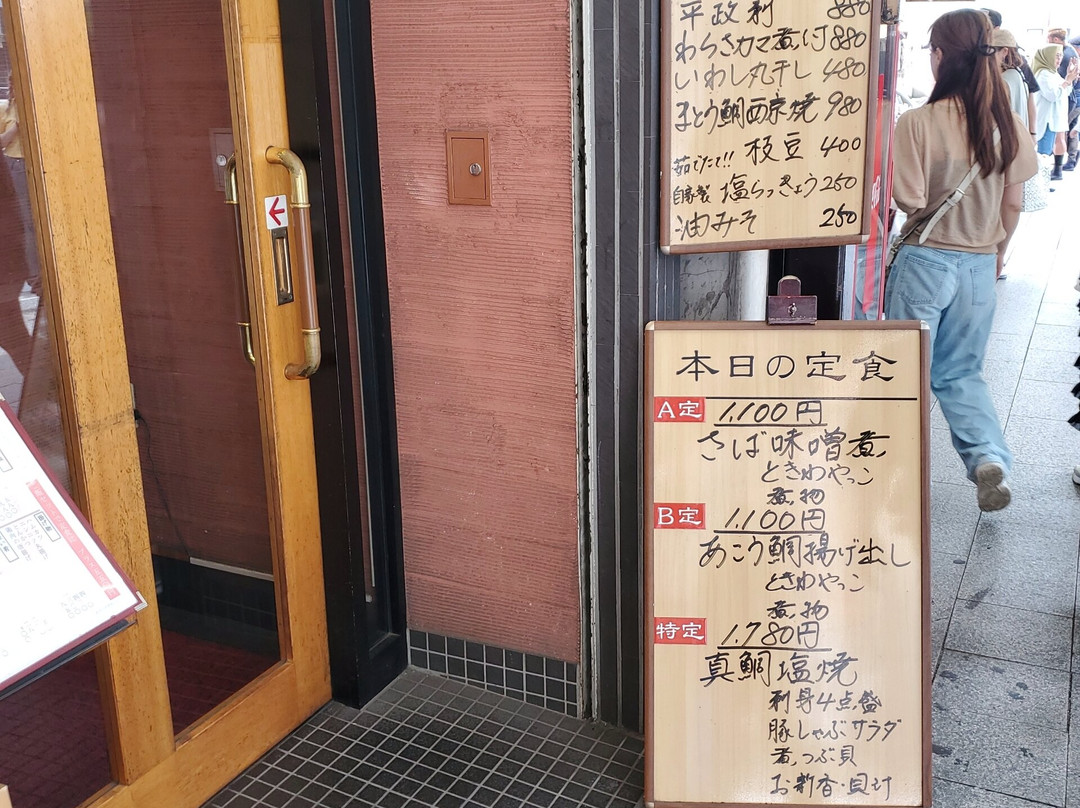 平政刺 880
わらさカマ煮付 880
いわし丸干し 480
まとう鯛西京焼 980
茹でたて!! 枝豆 400
自家製 塩らっきょう 250
油みそ 250
本日の定食
A定 1,100円
さば味噌煮
ときわやっこ
煮物
B定 1,100円
あこう鯛揚げ出し
ときわやっこ
煮物
特定 1,780円
真鯛塩焼
刺身4点盛
豚しゃぶサラダ
煮つぶ貝
お新香・貝汁